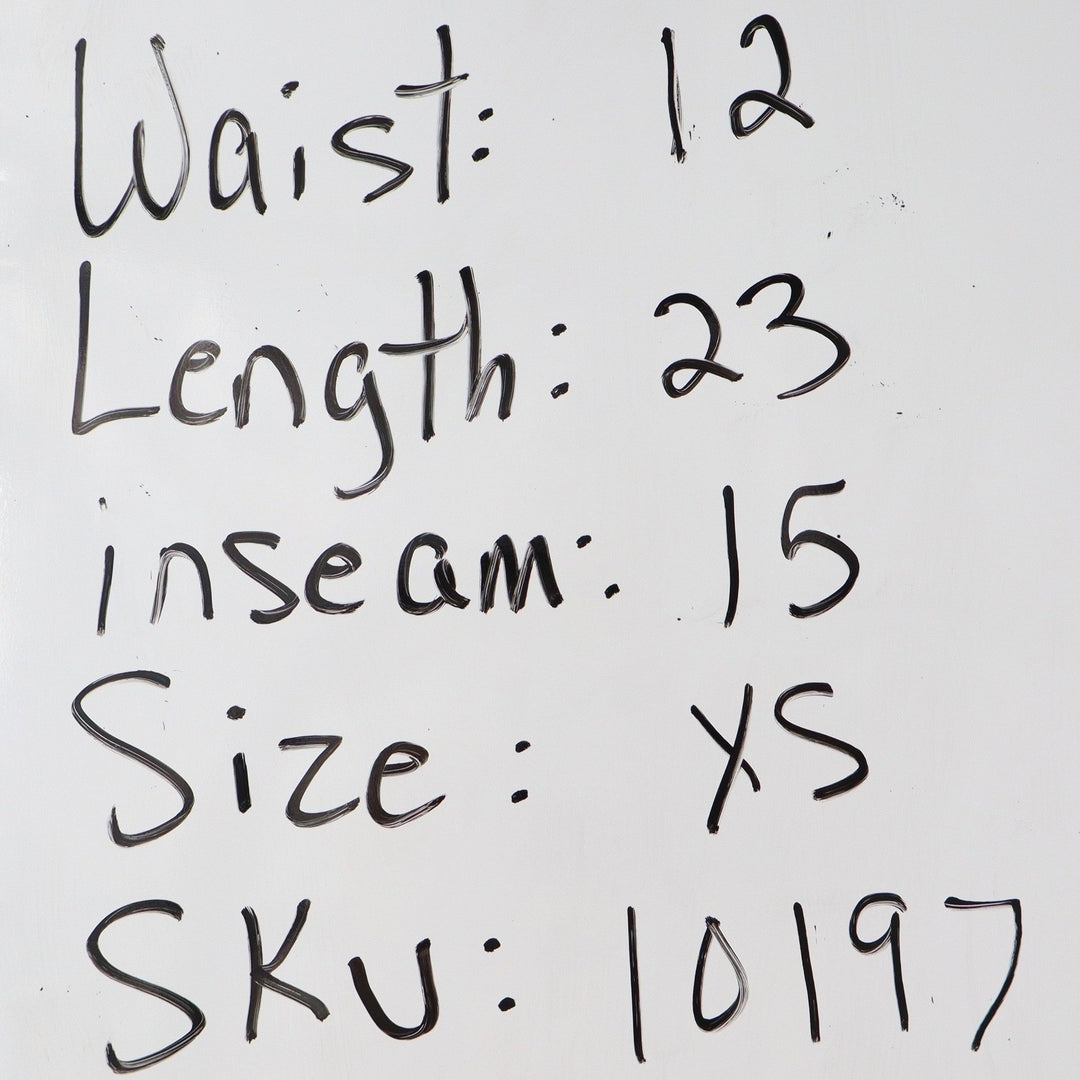 Waist: 12
Length: 23
inseam: 15
Size: XS
SKU: 10197